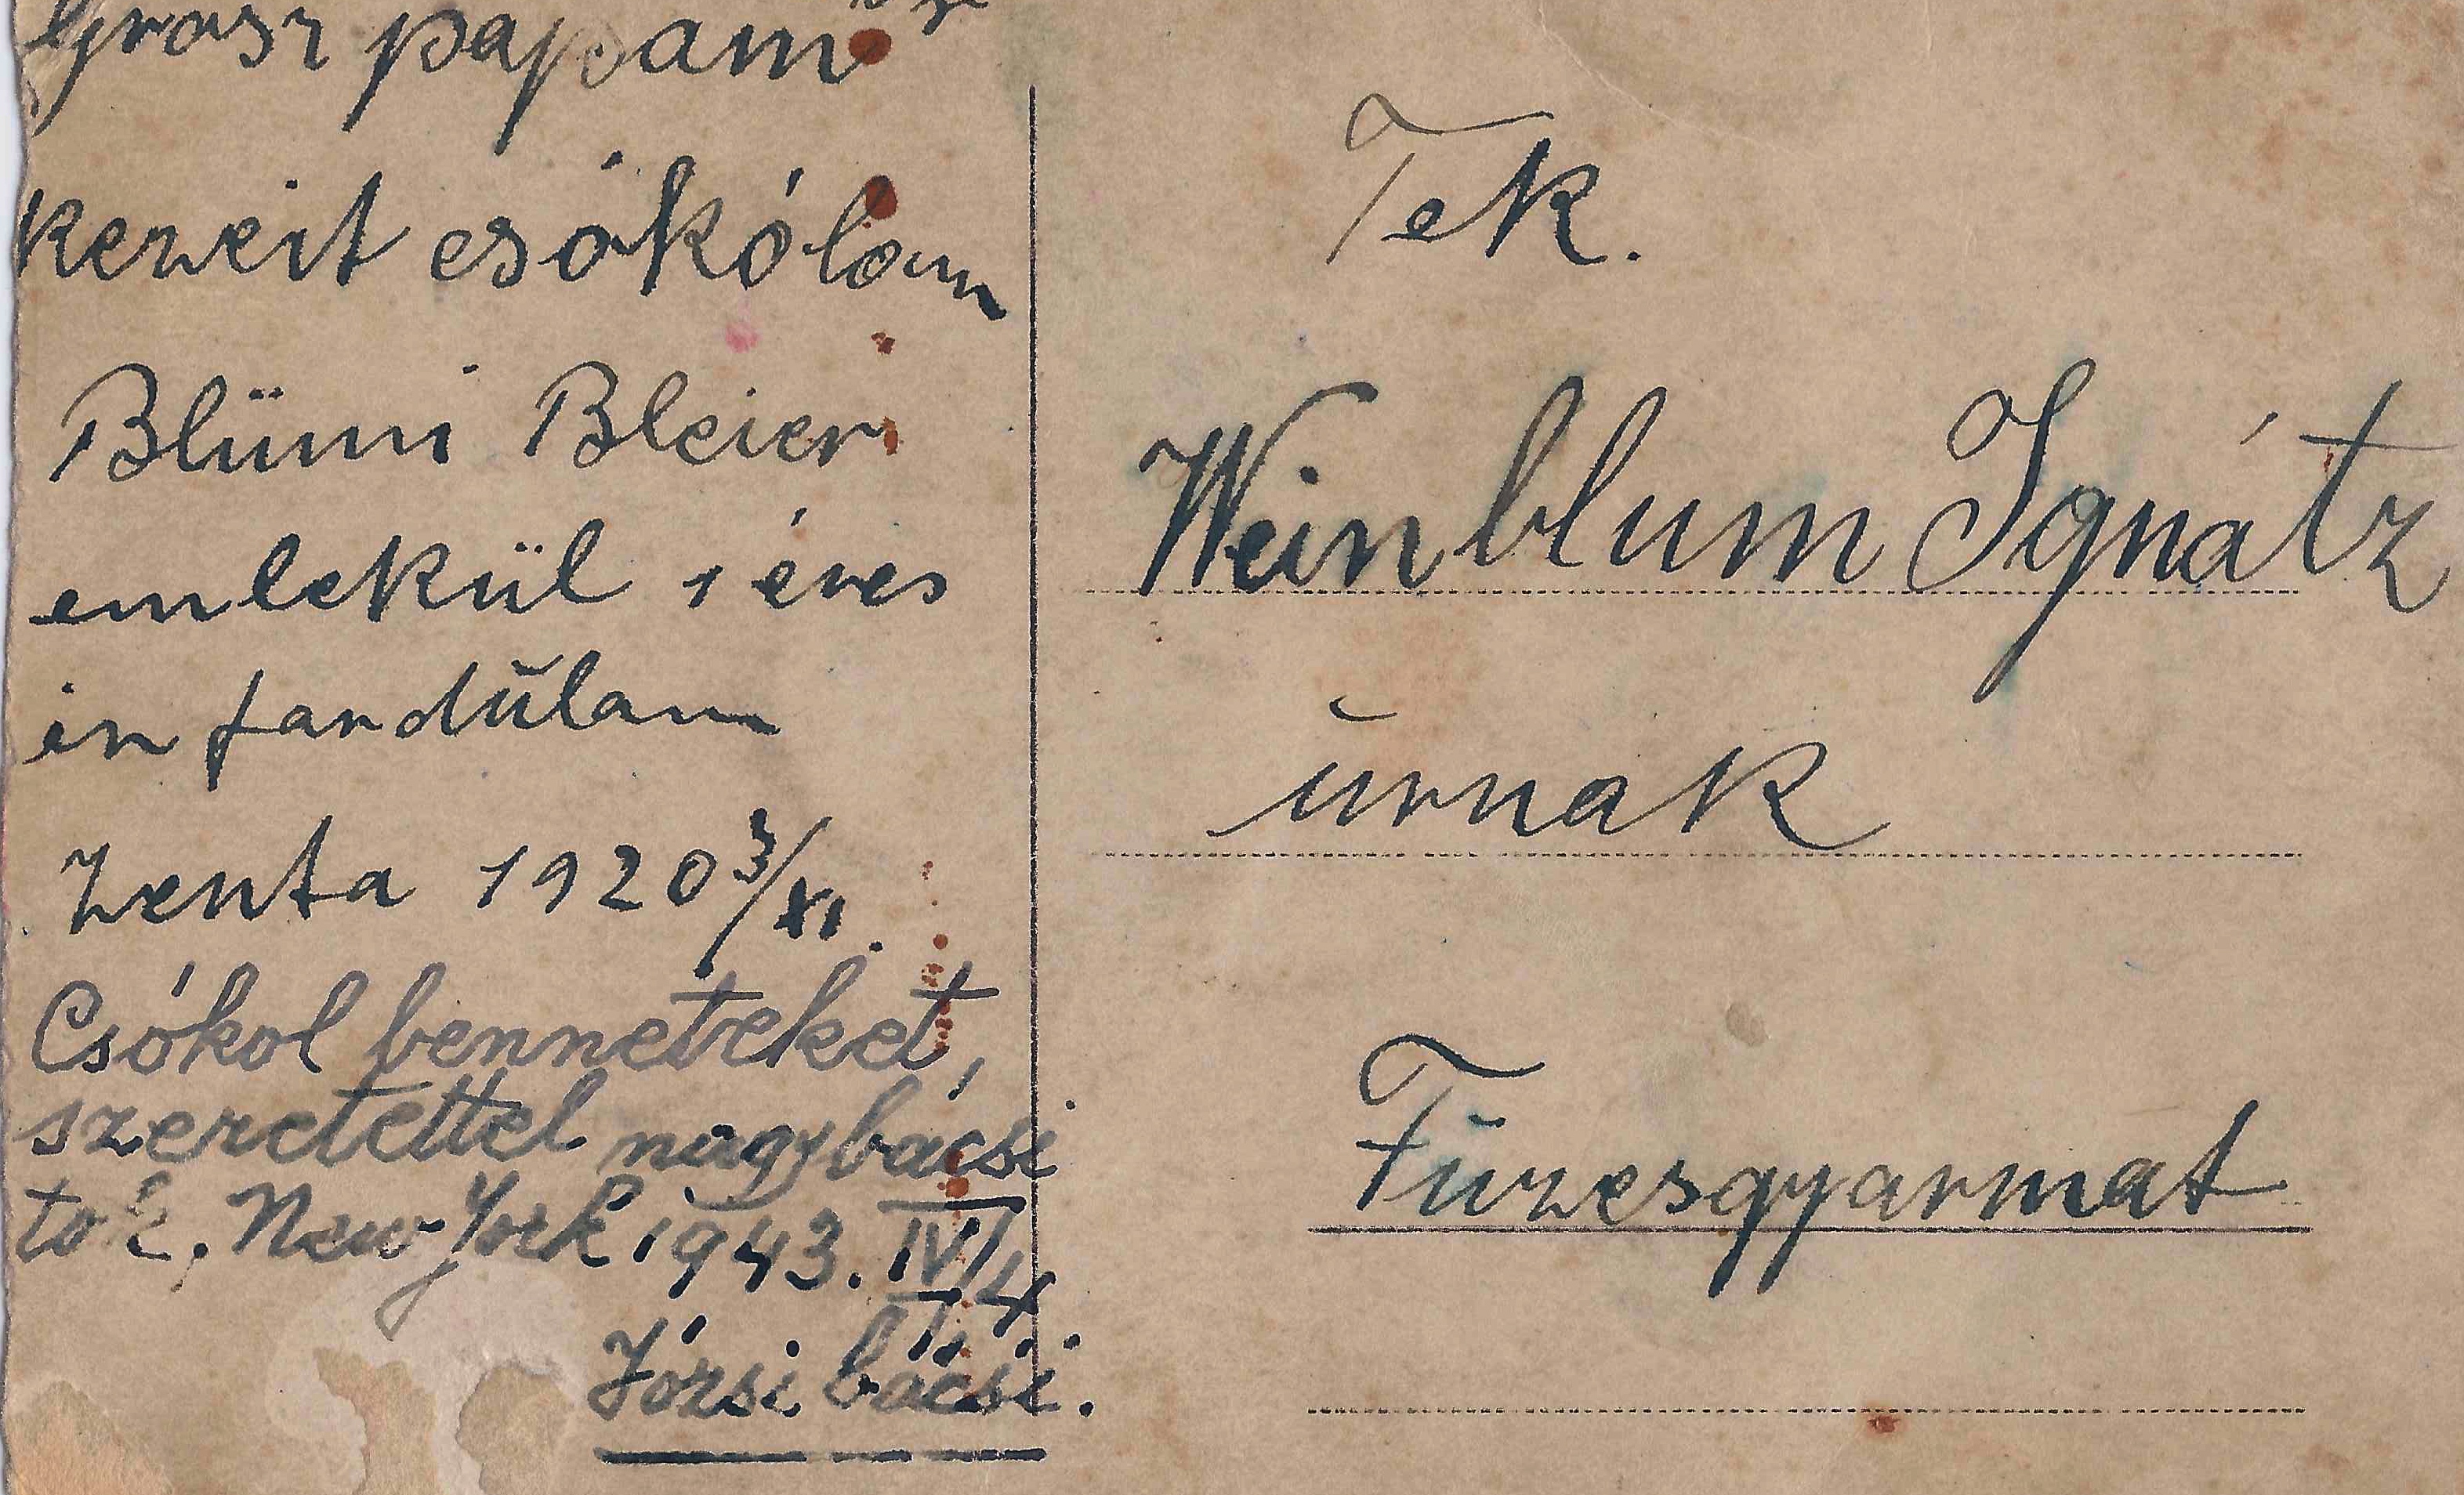 Grosz papam
kezeit csókólom
Blümi Bleier
emlekül 1 éves
én fardúlam
Zenta 1920 3/XI.
Csókol benneteket,
szeretettel nagybácsi
tok. New York 1943. IV/4.
Józsi bácsi.
Tek.
Weinblum Ignátz
úrnak
Füzesgyarmat